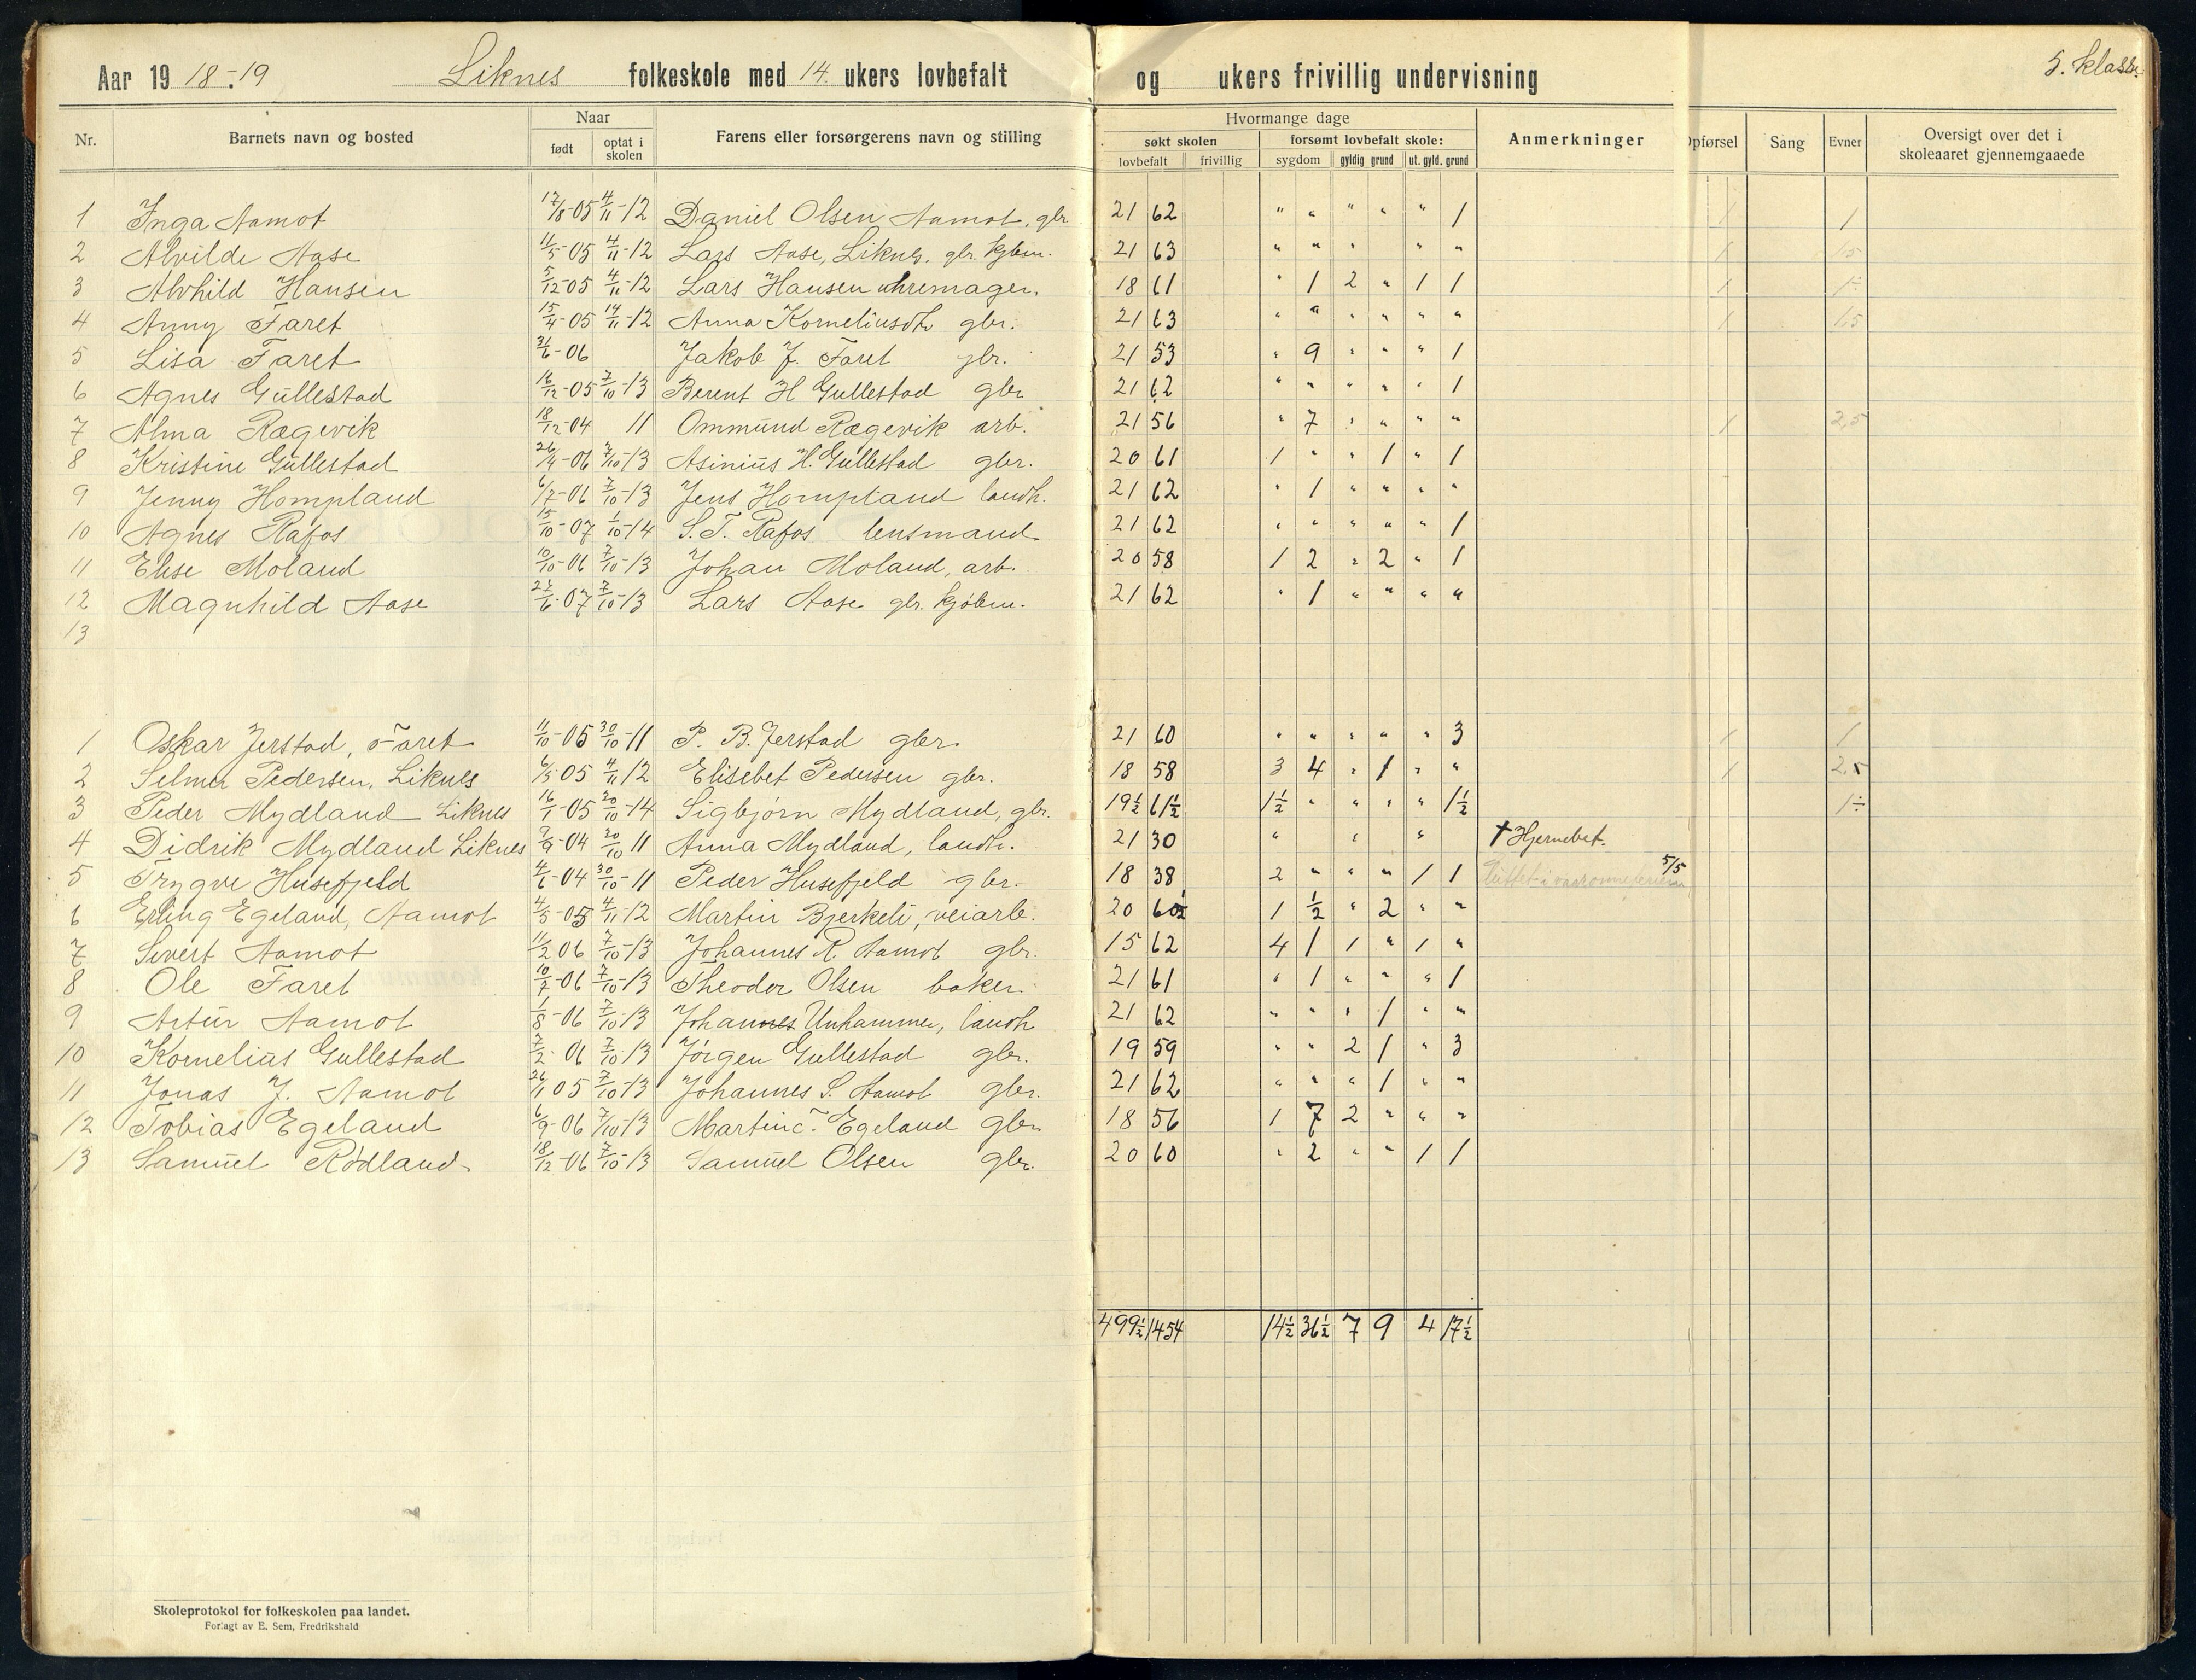 5. klasse.
Aar 19 18-19 Liknes folkeskole med 14. ukers lovbefalt og ukers frivillig undervisning
Nr. Barnets navn og bosted Naar født optat i skolen Farens eller forsørgerens navn og stilling Hvormange dage søkt skolen lovbefalt frivillig forsømt lovbefalt skole: sygdom gyldig grund ut. gyld. grund Anmerkninger Opførsel Sang Evner Oversigt over det i skoleaaret gjennemgaaede
1 Inga Aamot 17/8-05 4/11-12 Daniel Olsen Aamot, gbr 21 62 " " " " " 1 1 1
2 Alvilde Aase 11/5-05 4/11-12 Lars Aase, Liknes. gbr. kjøbm. 21 63 " " " " " 1 1,5
3 Alvhild Hansen 5/12-05 4/11-12 Lars Hansen uhremager. 18 61 " 1 2 " 1 1 1 1÷
4 Anny Faret 15/4-05 14/11-12 Anna Korneliusdtr gbr. 21 63 " " " " " " 1 1,5
5 Lisa Faret 3/6-06 Jakob J. Faret gbr. 21 53 " 9 " " " 1
6 Agnes Gullestad 16/12-05 7/10-13 Berent H Gullestad gbr 21 62 " " " " " 1
7 Alma Rægevik 18/12-04 11 Ommund Rægevik arb. 21 56 " 7 " " " " 1 2,5
8 Kristine Gullestad 26/4-06 7/10-13 Asinius H. Gullestad gbr. 20 61 1 " " 1 " 1
9 Jenny Hompland 6/7-06 7/10-13 Jens Hompland landh. 21 62 " 1 " " " "
10 Agnes Rafos 15/10-07 1/10-14 S. T. Rafos lensmand 21 62 " " " " " 1
11 Elise Moland 10/10-06 7/10-13 Johan Moland, arb. 20 58 1 2 " 2 " 1
12 Magnhild Aase 22/6-07 7/10-13 Lars Aase gbr. kjøbm. 21 62 " 1 " " " "
13
1 Oskar Jerstad, Faret 11/10-05 30/10-11 P. B. Jerstad gbr. 21 60 " " " " " 3 1 1
2 Selmer Pedersen, Liknes 6/5-05 4/11 12 Elisebet Pedersen gbr. 18 58 3 4 " 1 " " 1 2,5
3 Peder Mydland Liknes 16/1-05 20/10-14 Sigbjørn Mydland, gbr. 19½ 61½ 1½ " " " " 1½ 1÷
4 Didrik Mydland Liknes 7/9-04 20/10 11 Anna Mydland, landh. 21 30 " " " † Hjernebet.
5 Trygve Husefjeld 4/6-04 30/10-11 Peder Husefjeld gbr. 18 38 2 " " " 1 1 5/5
6 Erling Egeland, Aamot 4/5-05 4/11-12 Martin Bjerkeli, veiarb. 20 60½ 1 ½ " 2 " "
7 Sivert Aamot 11/2 06 7/10-13 Johannes R. Aamot gbr. 15 62 4 1 1 " 1 "
8 Ole Faret 10/7-06 7/10-13 Theodor Olsen baker 21 61 " 1 " " " 1
9 Artur Aamot 1/8-06 7/10-13 Johannes Unhammer, landh 21 62 " " " 1 " "
10 Kornelius Gullestad 7/2-06 7/10 13 Jørgen Gullestad gbr. 19 59 " " 2 1 " 3
11 Jonas J. Aamot 26/1 05 7/10-13 Johannes S. Aamot gbr. 21 62 " " " 1 " "
12 Tobias Egeland 6/9-06 7/10 13 Martin T. Egeland gbr. 18 56 1 7 2 " " "
13 Samuel Rødland 18/12-06 7/10-13 Samuel Olsen gbr. 20 60 " 2 " " 1 1
499½ 1454 14½ 36½ 7 9 4 17½
Skoleprotokol for folkeskolen paa landet.
Forlagt av E. Sem, Fredrikshald